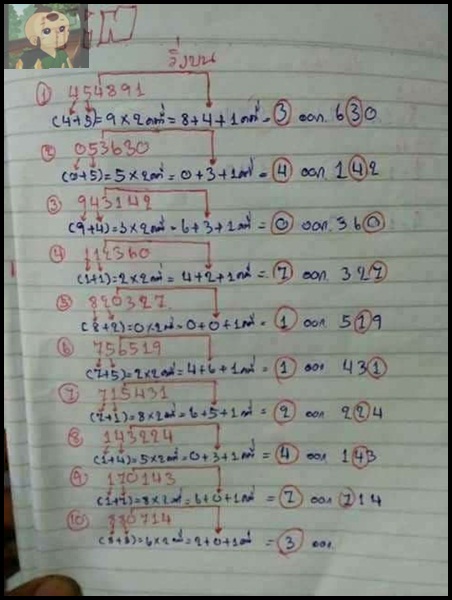 วิ่งบน
① 454891
(4+5)=9×2คที่=8+4+1คที่=③ ออก 630
② 053630
(0+5)=5×2คที่=0+3+1คที่=④ ออก 142
③ 943142
(9+4)=3×2คที่=6+3+1คที่=⓪ ออก 360
④ 112360
(1+1)=2×2คที่=4+2+1คที่=⑦ ออก 327
⑤ 820327
(8+2)=0×2คที่=0+0+1คที่=① ออก 519
⑥ 756519
(7+5)=2×2คที่=4+6+1คที่=① ออก 431
⑦ 715431
(7+1)=8×2คที่=6+5+1คที่=② ออก 224
⑧ 143224
(1+4)=5×2คที่=0+3+1คที่=④ ออก 143
⑨ 170143
(1+7)=8×2คที่=6+0+1คที่=⑦ ออก 714
⑩ 880714
(8+8)=6×2คที่=2+0+1คที่=③ ออก